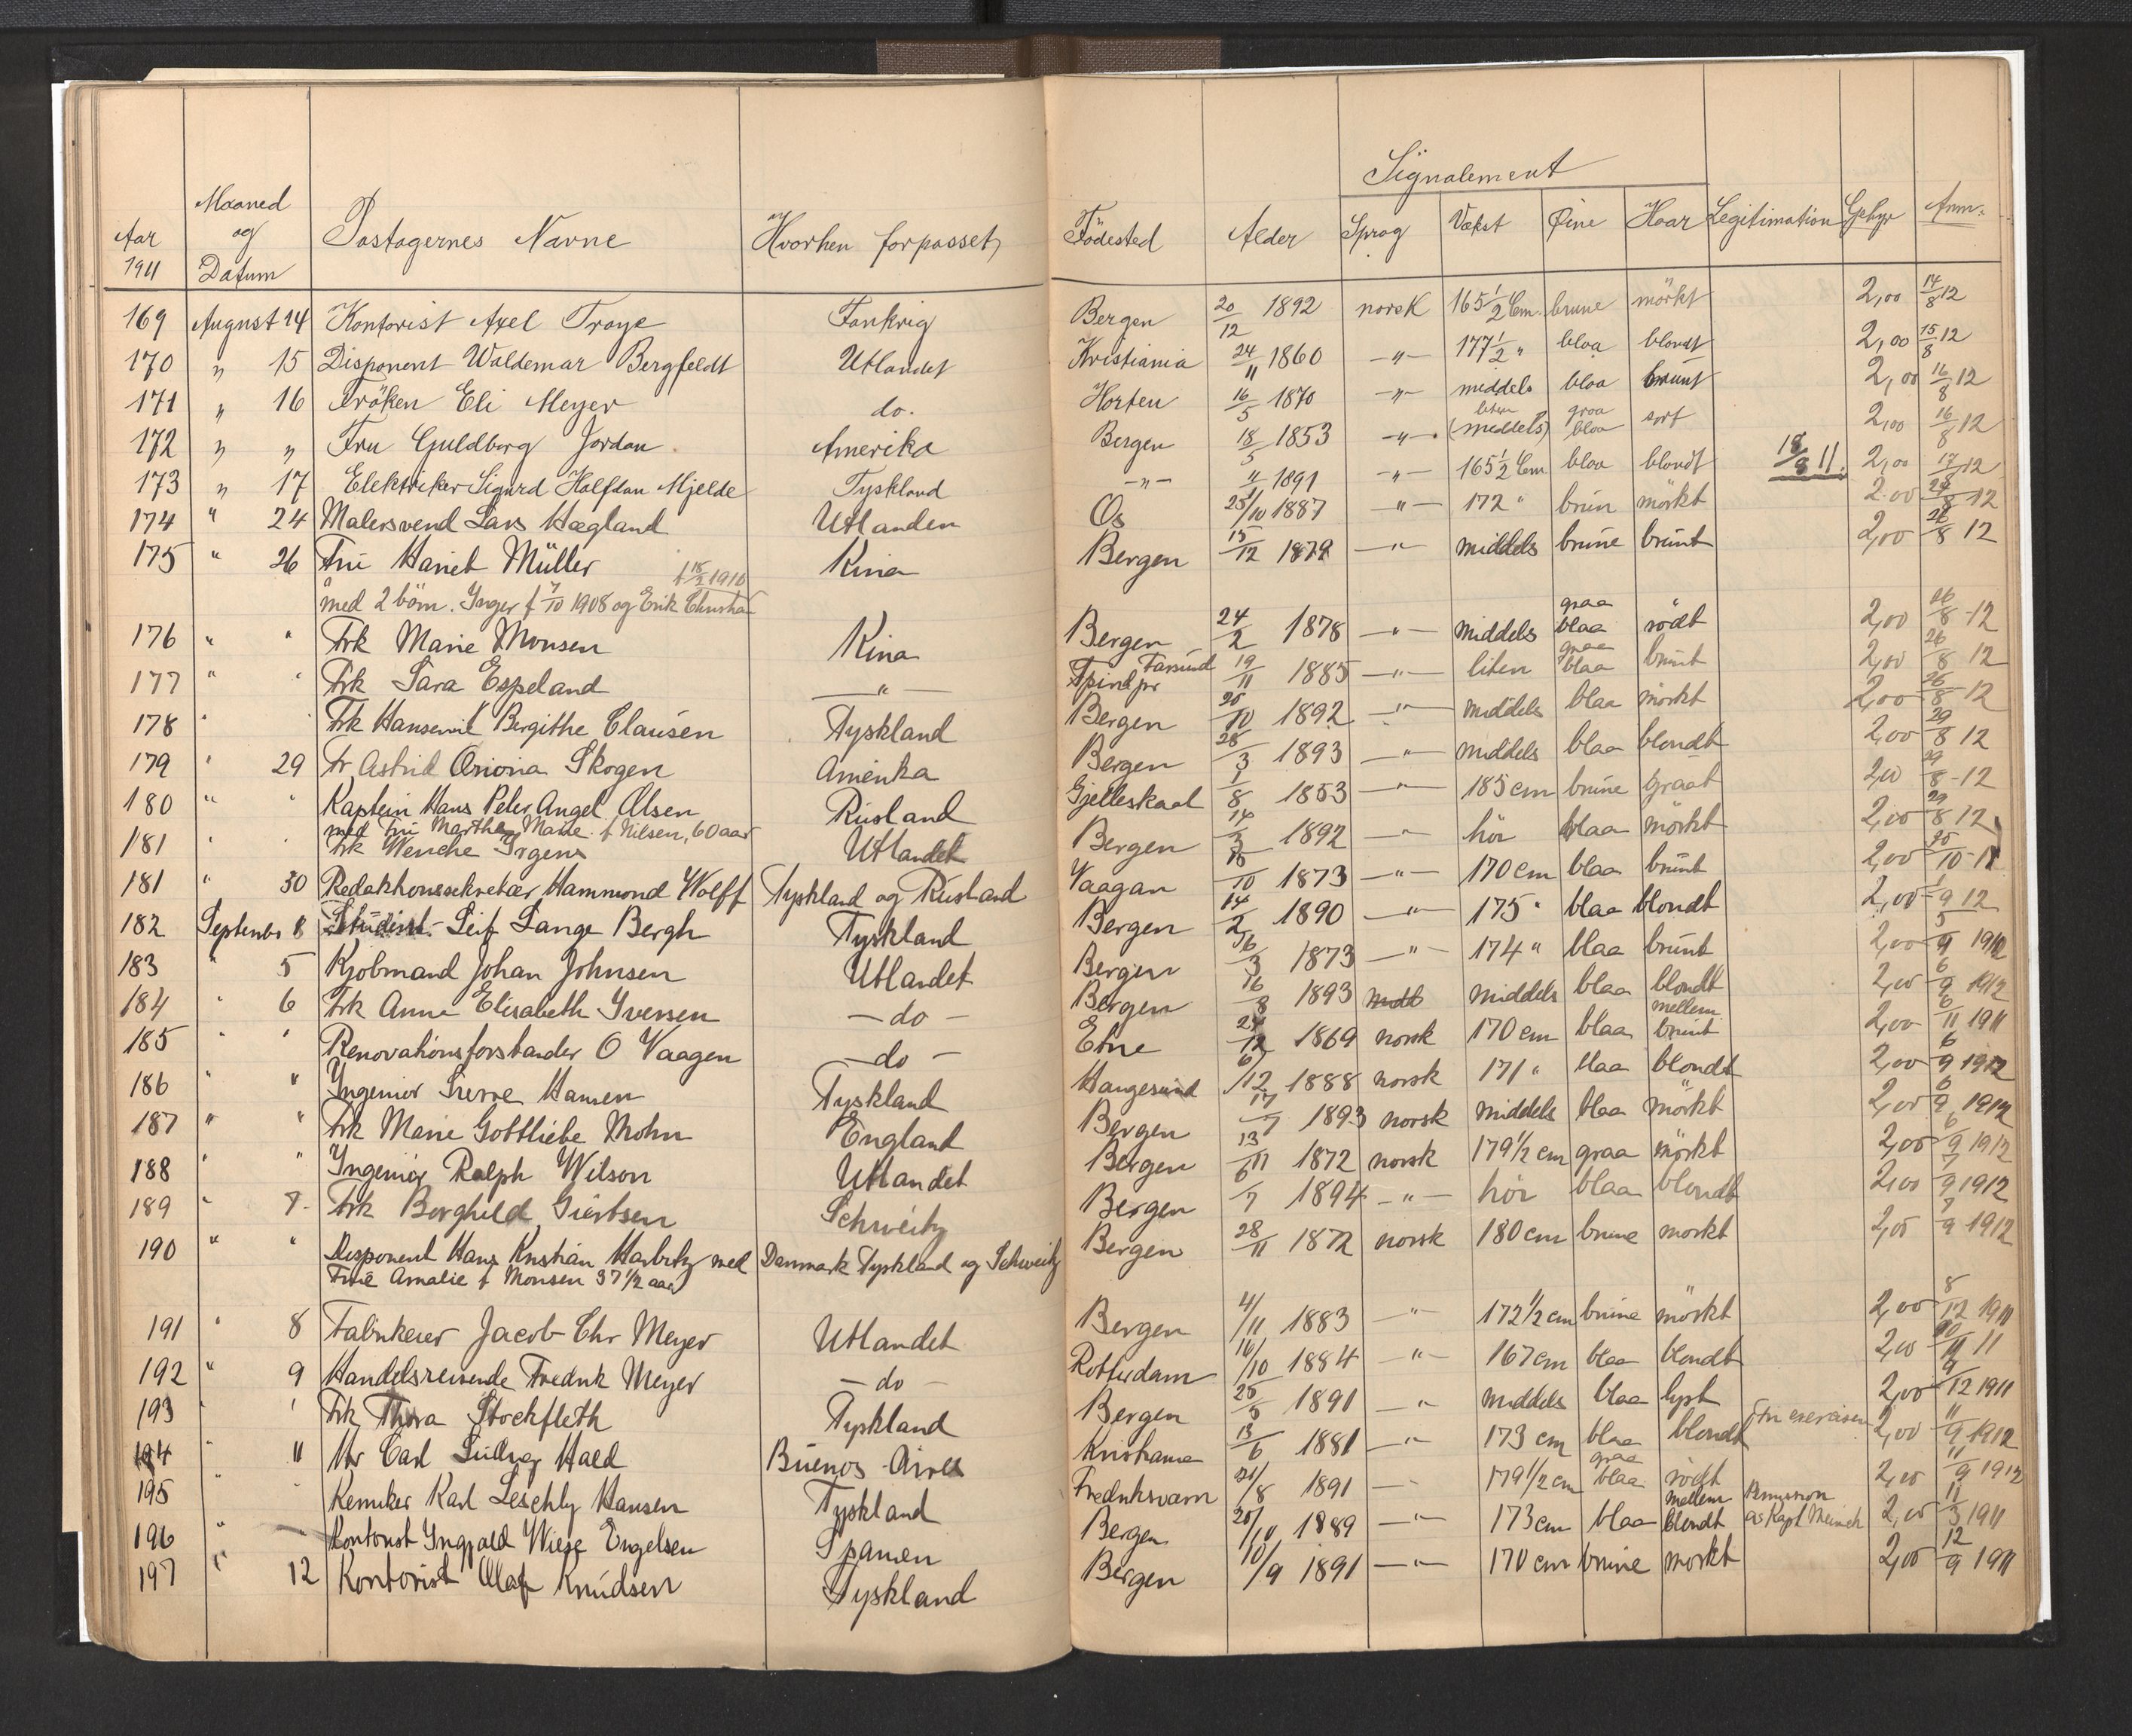 Signalement
Aar 1911 Maaned og Datum Pastagernes Navne Hvorhen forpasset Födested Alder Sprog Vækst Øine Haar Legitimation Gebyr Anm:
169 August 14 Kontorist Axel Troye Fankrig Bergen 20/12 1892 norsk 165 1/2 Cm. brune mörkt 2,00 14/8 12
170 " 15 Disponent Waldemar Bergfeldt Utlandet Kristiania 24/11 1860 -"- 177 1/2 " blaa blondt 2,00 15/8 12
171 " 16 Fröken Eli Meyer do. Horten 16/5 1870 -"- middels blaa brunt 2,00 16/8 12
172 " " Fru Guldborg Jordan Amerika Bergen 18/5 1853 -"- liten (middels) graa blaa sort 2,00 16/8 12
173 " 17 Elektriker Sigurd Halfdan Mjelde Tyskland -"- 1891 -"- 165 1/2 Cm blaa blondt 18/8 11. 2,00 17/8 12
174 " 24 Malersvend Lars Hægland Utlanden Os 25/10 1887 -"- 172 " brun mörkt 2.00 24/8 12
175 " 26 Fru Hariet Müller Kina Bergen 15/12 1879 -"- middels brune brunt 2,00 26/8 12
med 2 börn. Inger f 7/10 1908 og Erik Christian f 18/2 1910
176 " " Frk Marie Monsen Kina Bergen 24/2 1878 -"- middels graa blaa rödt 2,00 26/8 -12
177 " " Frk Sara Espeland -"- Spind pr Farsund 19/11 1885 -"- liten graa blaa brunt 2,00 26/8 12
178 " Frk Hansemil Bergithe Clausen Tyskland Bergen 25/10 1892 -"- middels blaa mörkt 2,00 26/8 -12
179 " 29 Fr Astrid Oriona Skogen Amerika Bergen 28/3 1893 -"- middels blaa blondt 2,00 29/8 12
180 " " Kaptein Hans Peter Angel Olsen Rusland Gjelleskaal 1/8 1853 -"- 185 cm brune graat 2,00 29/8 -12
med Fru Marthe Marie f Nilsen, 60 aar
181 " " Frk Wenche Irgens Utlandet Bergen 14/3 1892 -"- hör blaa mörkt 2,00 29/8 12
181 " 30 Redaktionssekretær Hammond Wolff Tyskland og Rusland Vaagan 1873 -"- 170 cm blaa brunt 2,00
182 September Student Leif Lange Bergh Tyskland Bergen 14/2 1890 -"- 175 " blaa blondt 2,00 1/9 12
183 " 5 Kjöbmand Johan Johnsen Utlandet Bergen 1873 -"- 174 " blaa brunt 2,00 5/9 1912
184 " 6 Frk Anna Elisabeth Iversen -do- Bergen 16/8 1893 middels blaa blondt 2,00 6/9 1912
185 " " Renovationsforstander O Vaagen -do- Etne 24/12 1869 norsk 170 cm blaa mellem brunt 2,00 6/11 1911
186 " " Ingeniör Sverre Hansen Tyskland Haugesund 6/12 1888 norsk 171 " blaa blondt 2,00 6/9 1912
187 " " Frk Marie Gottliebe Mohn England Bergen 17/7 1893 norsk middels blaa mörkt 2,00 6/9 1912
188 " " Ingeniör Ralph Wilson Utlandet Bergen 13/11 1872 norsk 179 1/2 cm graa mörkt 2,00 6/9 1912
189 " 7. Frk Borghild Giertsen Schweitz Bergen 6/7 1894 -"- hör blaa blondt 2,00 7/9 1912
190 " " Disponent Hans Kristian Harbitz med Danmark Tyskland og Schweitz Bergen 28/11 1872 norsk 180 cm brune mörkt 2,00 7/9 1912
Frue Amalie f Monsen 37 1/2 aar
191 " 8 Fabrikeier Jacob Chr Meyer Utlandet Bergen 4/11 1883 -"- 172 1/2 cm brune mörkt 2,00 8/12 1911
192 " 9 Handelsreisende Fredrik Meyer -do- Rotterdam 16/10 1884 -"- 167 cm blaa blondt 2,00 11
193 " " Frk Thora Stockfleth Tyskland Bergen 1891 -"- middels blaa lyst 2,00 9/12 1911
194 " 11 Hr Carl Ludvig Hald Buenos Aires Kristiania 13/6 1881 -"- 173 cm blaa blondt Fri exercisen 2,00 11/9 1912
195 " " Kemiker Karl Leschly Hansen Tyskland Fredriksværn 21/8 1891 - 179 1/2 cm graa blaa rödt 2,00 11/9 1912
196 " " Kontorist Ingvald Wiese Engelsen Spanien Bergen 1889 -"- 173 cm blaa mellem blondt Permission as Kapt Meinich 2,00 11/3 1911
197 " 12 Kontorist Olaf Knudsen Tyskland Bergen 10/9 1891 -"- 170 cm brune morkt 2,00 12/9 1911